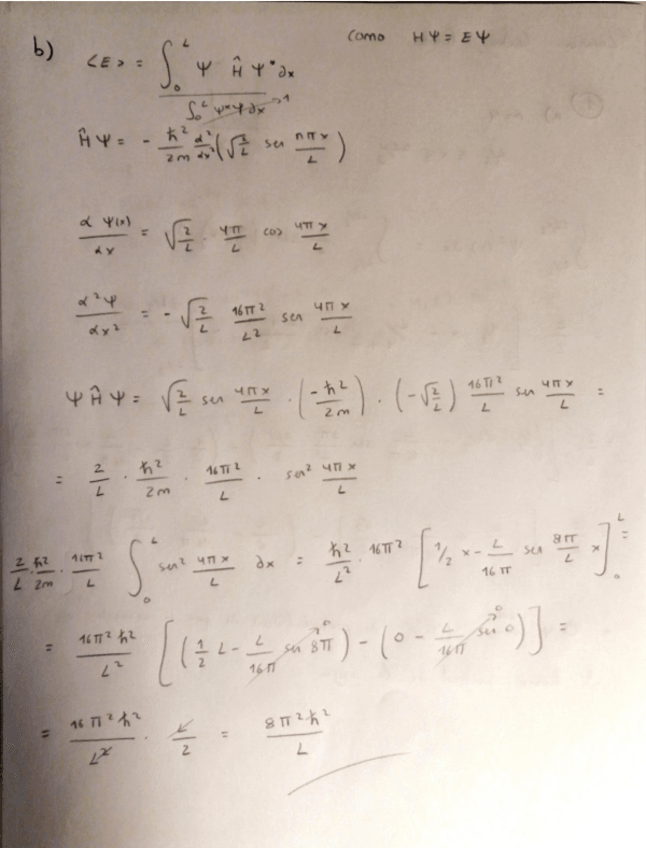 b) <E> = ∫₀ᴸ Ψ Ĥ Ψ* ∂x / ∫₀ᴸ Ψ*Ψ ∂x → 1 Como HΨ = EΨ
ĤΨ = - ħ²/2m d²/dx² (√(2/L) sen nπx/L)
d Ψ(x)/dx = √(2/L) · 4π/L cos 4πx/L
d²Ψ/dx² = - √(2/L) 16π²/L² sen 4πx/L
ΨĤΨ = √(2/L) sen 4πx/L · (-ħ²/2m) · (-√(2/L)) 16π²/L sen 4πx/L =
= 2/L · ħ²/2m · 16π²/L · sen² 4πx/L
2/L · ħ²/2m · 16π²/L ∫₀ᴸ sen² 4πx/L ∂x = ħ²/L² · 16π² [1/2 x - L/16π sen 8π/L x]₀ᴸ =
= 16π²ħ²/L² [(1/2 L - L/16π sen 8π → 0) - (0 - L/16π sen 0 → 0)] =
= 16π²ħ²/L² · L/2 = 8π²ħ²/L